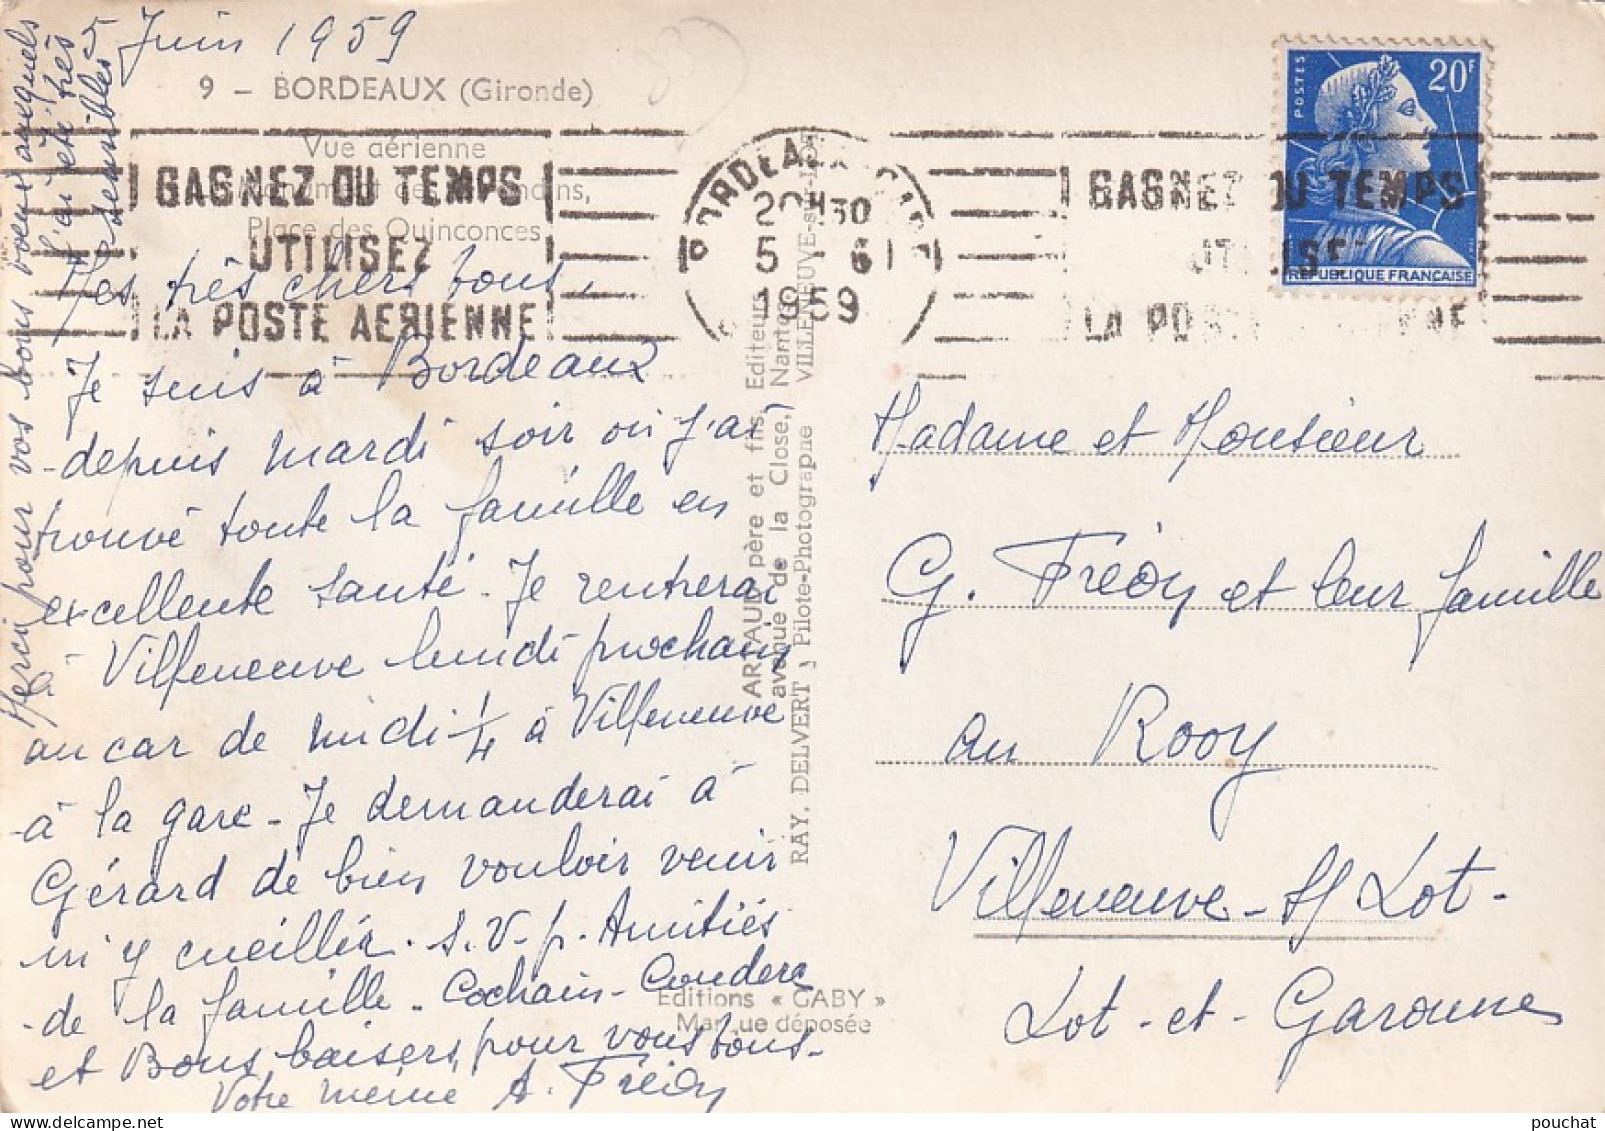 5 Juin 1959
9 - BORDEAUX (Gironde)
Vue aérienne
Place des Quinconces
GAGNEZ DU TEMPS
UTILISEZ
LA POSTE AERIENNE
BORDEAUX
20H30
5 - 6
1959
GAGNEZ DU TEMPS
UTILISEZ
LA POSTE AERIENNE
POSTES
20F
REPUBLIQUE FRANÇAISE
Mes très chers tous,
Je suis à Bordeaux
depuis mardi soir où j'ai
trouvé toute la famille en
excellente santé. Je rentrerai
à Villeneuve lundi prochain
au car de midi 1/4 à Villeneuve
à la gare - Je demanderai à
Gérard de bien vouloir venir
m'y cueillir. S.V.p. Amitiés
de la famille - Cochain-Couderc
et Bons baisers pour vous tous -
Votre mémé A. Fréoy
Merci pour vos bons vœux auxquels
j'ai été très
sensible
ARTAUD père et fils, Editeurs
avenue de la Close, Nantes
RAY. DELVERT, Pilote-Photographe VILLENEUVE-sur-LOT
Editions « GABY »
Marque déposée
Madame et Monsieur
G. Fréoy et leur famille
au Rooy
Villeneuve-s/ Lot -
Lot-et-Garonne
pouchat